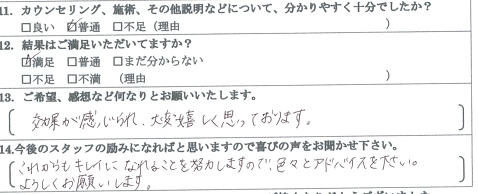 11. カウンセリング、施術、その他説明などについて、分かりやすく十分でしたか？
□良い ☑普通 □不足（理由 ）
12. 結果はご満足いただいてますか？
☑満足 □普通 □まだ分からない
□不足 □不満 （理由 ）
13. ご希望、感想など何なりとお願いいたします。
効果が感じられ、大変嬉しく思っております。
14.今後のスタッフの励みになればと思いますので喜びの声をお聞かせ下さい。
これからもキレイになれることを努力しますので、色々とアドバイスを下さい。
よろしくお願いします。